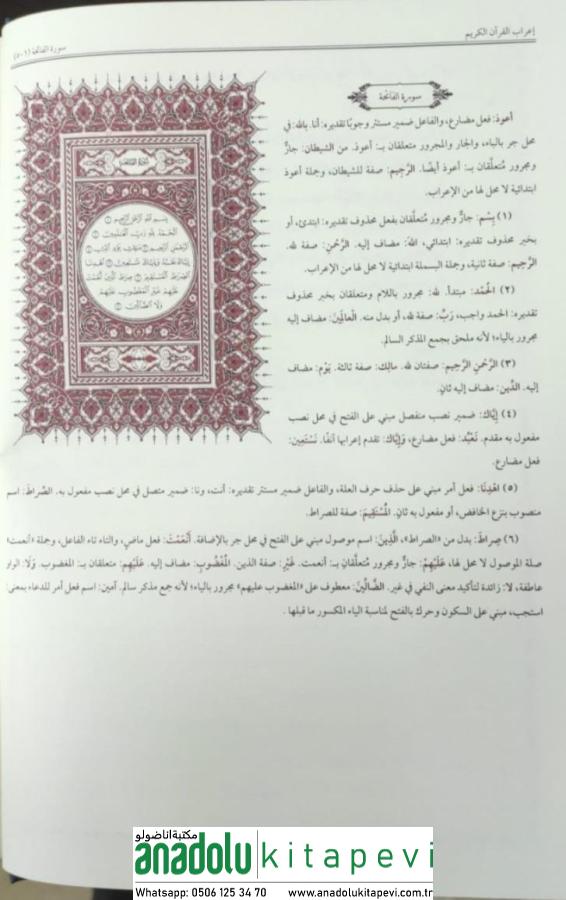 إعراب القرآن الكريم
سورة الفاتحة (١-٥)
سورة الفاتحة
أعوذ: فعل مضارع، والفاعل ضمير مستتر وجوبًا تقديره: أنا. بالله: في
محل جر بالباء، والجار والمجرور متعلقان بـ: أعوذ. من الشيطان: جارٌّ
ومجرور مُتعلِّقان بـ: أعوذ أيضًا. الرَّجِيم: صفة للشيطان، وجملة أعوذ
ابتدائية لا محل لها من الإعراب.
(١) بِسْمِ: جارٌّ ومجرور مُتعلِّقان بفعل محذوف تقديره: ابتدئ، أو
بخبر محذوف تقديره: ابتدائي، اللهِ: مضاف إليه. الرَّحْمنِ: صفة لله.
الرَّحِيمِ: صفة ثانية، وجملة البسملة ابتدائية لا محل لها من الإعراب.
(٢) الْحَمْد: مبتدأ. لله: مجرور باللام ومتعلقان بخبر محذوف
تقديره: الحمد واجب، رَبِّ: صفة لله، أو بدل منه. الْعالَمِينَ: مضاف إليه
مجرور بالياء؛ لأنه ملحق بجمع المذكر السالم.
(٣) الرَّحْمنِ الرَّحِيمِ: صفتان لله. مالِكِ: صفة ثالثة. يَوْمِ: مضاف
إليه. الدِّينِ: مضاف إليه ثانٍ.
(٤) إِيَّاكَ: ضمير نصب منفصل مبني على الفتح في محل نصب
مفعول به مقدم. نَعْبُد: فعل مضارع، وَإِيَّاكَ: تقدم إعرابها آنفًا. نَسْتَعِين:
فعل مضارع.
(٥) اهْدِنَا: فعل أمر مبني على حذف حرف العلة، والفاعل ضمير مستتر تقديره: أنت، ونا: ضمير متصل في محل نصب مفعول به. الصِّراطَ: اسم
منصوب بنزع الخافض، أو مفعول به ثانٍ. الْمُسْتَقِيمَ: صفة للصراط.
(٦) صِراطَ: بدل من «الصراط»، الَّذِينَ: اسم موصول مبني على الفتح في محل جر بالإضافة. أَنْعَمْتَ: فعل ماضٍ، والتاء تاء الفاعل، وجملة «أنعمت»
صلة الموصول لا محل لها، عَلَيْهِمْ: جارٌّ ومجرور مُتعلِّقان بـ: أنعمت. غَيْرِ: صفة الذين. الْمَغْضُوبِ: مضاف إليه. عَلَيْهِمْ: متعلقان بـ: المغضوب. وَلَا: الواو
عاطفة، لا: زائدة لتأكيد معنى النفي في غير. الضَّالِّينَ: معطوف على «المغضوب عليهم» مجرور بالياء؛ لأنه جمع مذكر سالم. آمين: اسم فعل أمر للدعاء بمعنى:
استجب، مبني على السكون وحرك بالفتح لمناسبة الياء المكسور ما قبلها.
سُورَةُ الْفَاتِحَةِ
بِسْمِ اللَّهِ الرَّحْمَٰنِ الرَّحِيمِ ١
الْحَمْدُ لِلَّهِ رَبِّ الْعَالَمِينَ ٢
الرَّحْمَٰنِ الرَّحِيمِ ٣ مَالِكِ يَوْمِ الدِّينِ ٤
إِيَّاكَ نَعْبُدُ وَإِيَّاكَ نَسْتَعِينُ ٥ اهْدِنَا
الصِّرَاطَ الْمُسْتَقِيمَ ٦ صِرَاطَ الَّذِينَ أَنْعَمْتَ
عَلَيْهِمْ غَيْرِ الْمَغْضُوبِ عَلَيْهِمْ
وَلَا الضَّالِّينَ ٧
مكتبة اناضولو
anadolu kitapevi
Whatsapp: 0506 125 34 70 www.anadolukitapevi.com.tr